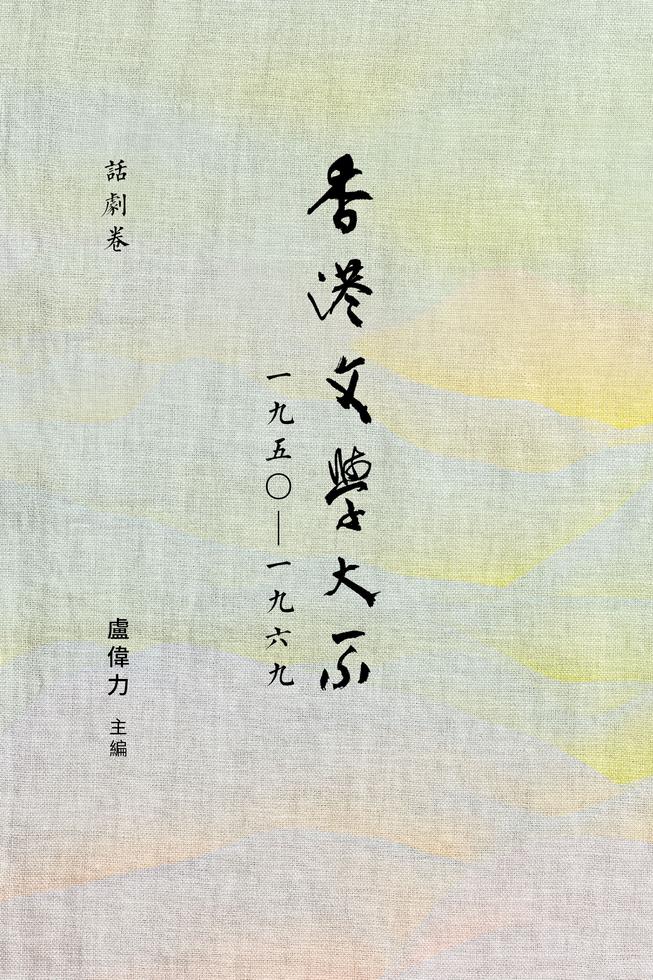 香港文學大系
一九五〇—一九六九
話劇卷
盧偉力 主編